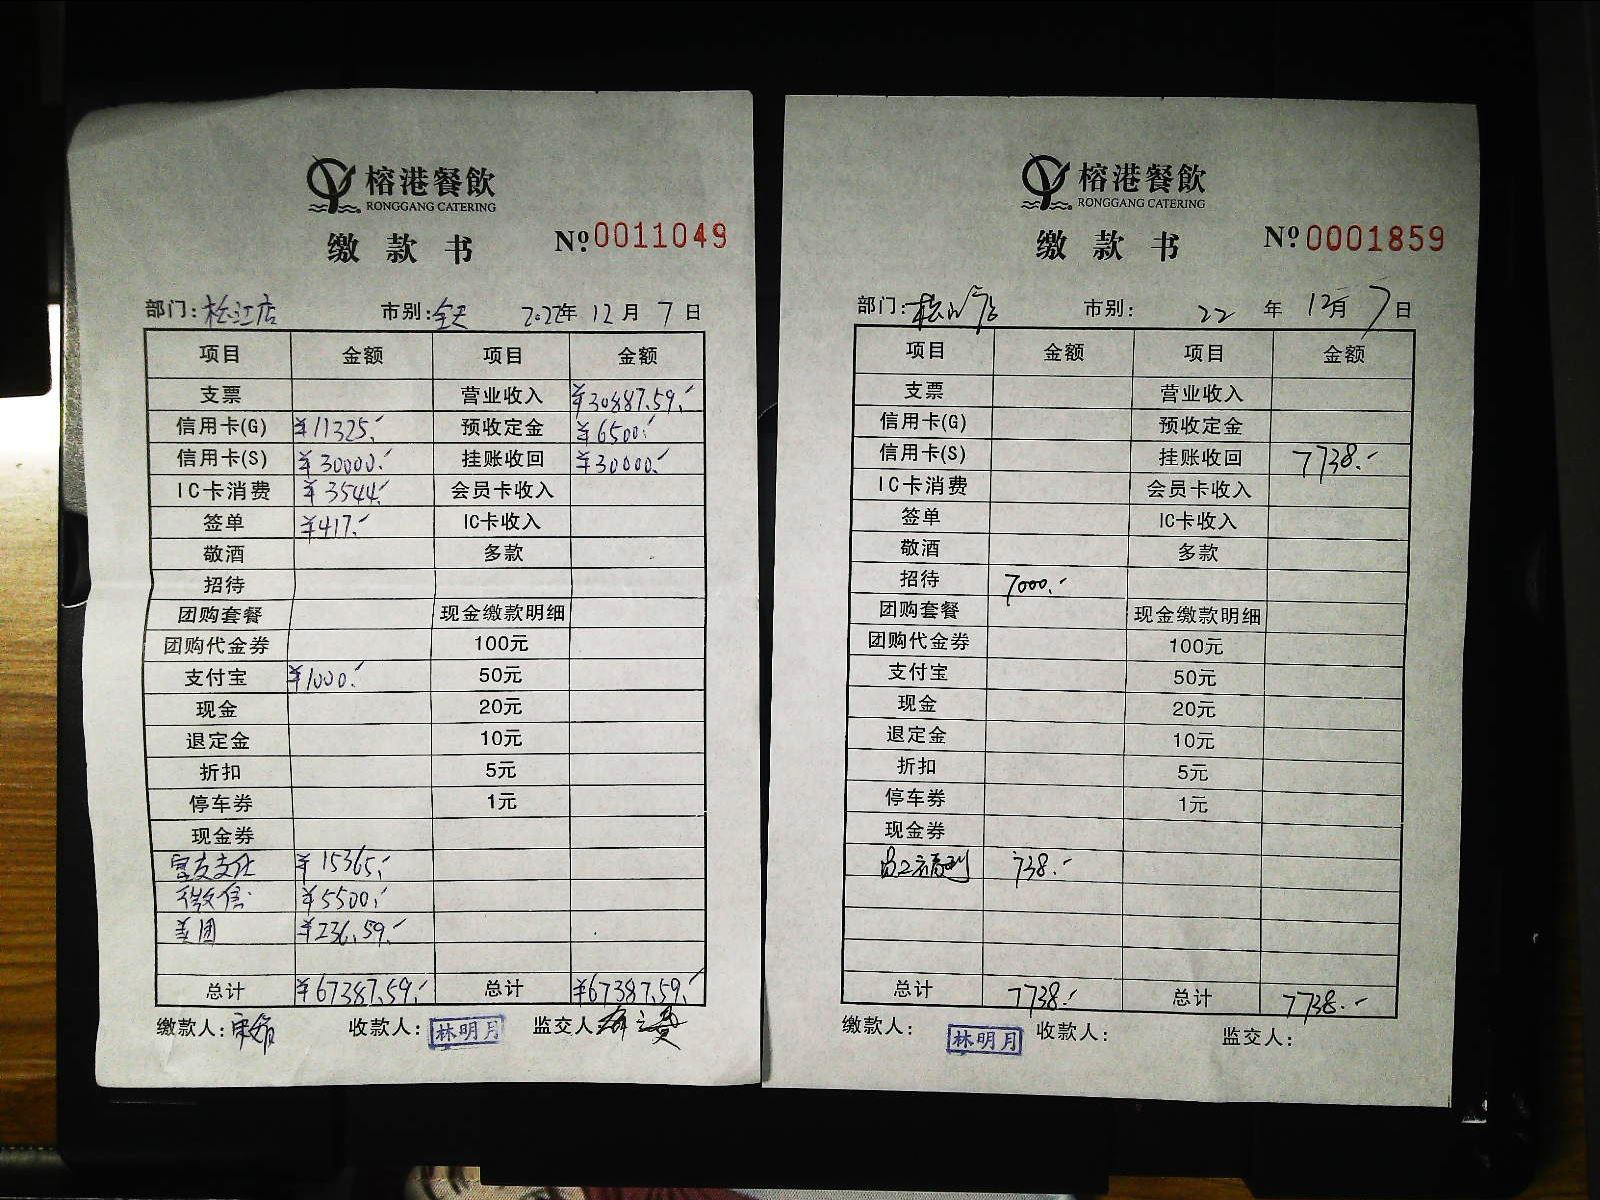 榕港餐飲
RONGGANG CATERING
缴款书
Nº 0011049
部门:松江店 市别:全天 2022年12月7日
项目 金额 项目 金额
支票 营业收入 ¥30887.59.-
信用卡(G) ¥11325.- 预收定金 ¥6500.-
信用卡(S) ¥30000.- 挂账收回 ¥30000.-
IC卡消费 ¥3544.- 会员卡收入
签单 ¥417.- IC卡收入
敬酒 多款
招待
团购套餐 现金缴款明细
团购代金券 100元
支付宝 ¥1000.- 50元
现金 20元
退定金 10元
折扣 5元
停车券 1元
现金券
富友支付 ¥15365.-
微信 ¥5500.-
美团 ¥236.59.-
总计 ¥67387.59.- 总计 ¥67387.59.-
缴款人: 收款人: 林明月 监交人
榕港餐飲
RONGGANG CATERING
缴款书
Nº 0001859
部门:松江店 市别: 22年12月7日
项目 金额 项目 金额
支票 营业收入
信用卡(G) 预收定金
信用卡(S) 挂账收回 7738.-
IC卡消费 会员卡收入
签单 IC卡收入
敬酒 多款
招待 7000.-
团购套餐 现金缴款明细
团购代金券 100元
支付宝 50元
现金 20元
退定金 10元
折扣 5元
停车券 1元
现金券
员工福利 738.-
总计 7738.- 总计 7738.-
缴款人: 林明月 收款人: 监交人: